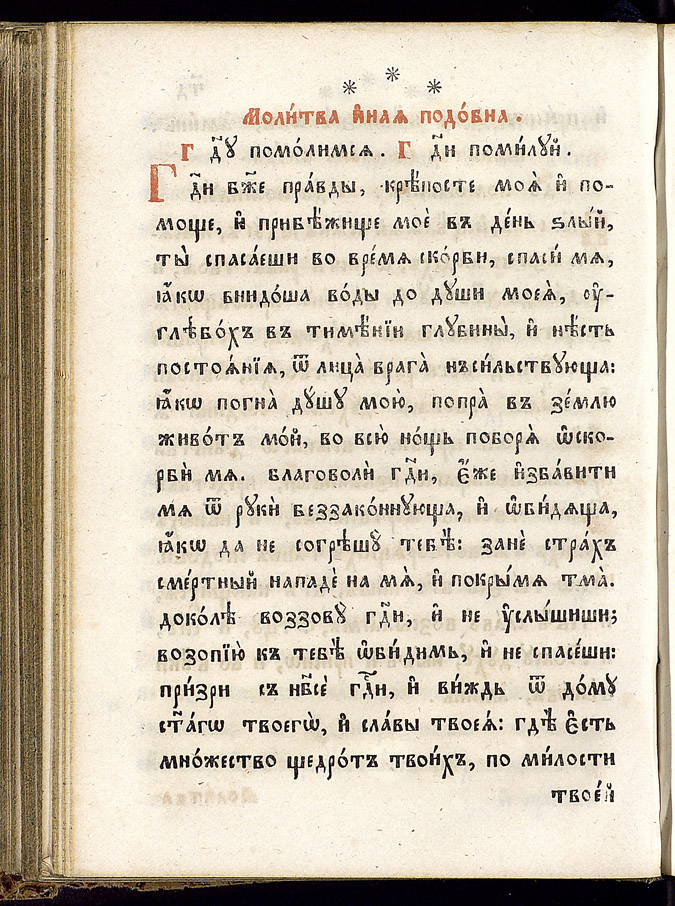 * * *
Моли́тва и҆́наѧ подо́бна.
Гд҇ꙋ помо́лимсѧ. Гд҇и поми́лꙋй.
Гд҇и бж҃е пра́вды, крѣ́посте моѧ̀ и҆ по-
моще, и҆ прибѣ́жище моѐ въ де́нь ѕлы́й,
ты̀ спаса́еши во вре́мѧ ско́рби, спаси́ мѧ,
ꙗ҆́кѡ внидо́ша во́ды до дꙋши моеѧ̀, ᲂу҆-
глѣбо́хъ въ тимѣ́нїи глꙋбины̀, и҆ нѣ́сть
постоѧ́нїѧ, ѿ лица̀ врага̀ нъси́льствꙋюща:
ꙗ҆́кѡ погна̀ дꙋ́шꙋ мою̀, попра̀ въ зе́млю
живо́тъ мо́й, во всю̀ но́щь поборѧ̀ ѡ҆ско-
рби̾ мѧ. благоволѝ гд҇и, є҆́же и҆зба́вити
мѧ ѿ рꙋкѝ беззако́ннꙋюща, и҆ ѡ҆би́дѧща,
ꙗ҆́кѡ да не согрѣшꙋ̀ тебѣ̀: занѐ стра́хъ
сме́ртный нападѐ на мѧ̀, и҆ покры́мѧ тма̀.
доко́лѣ воззовꙋ̀ гд҇и, и҆ не ᲂу҆слы́шиши;
возопїю̀ къ тебѣ̀ ѡ҆би́димь, и҆ не спасе́ши:
при́зри съ нб҃сѐ гд҇и, и҆ ви́ждь ѿ до́мꙋ
ст҃а́гѡ твоегѡ̀, и҆ сла́вы твоеѧ̀: гдѣ̀ є҆́сть
мно́жество щедро́тъ твои́хъ, по ми́лости
твое́й